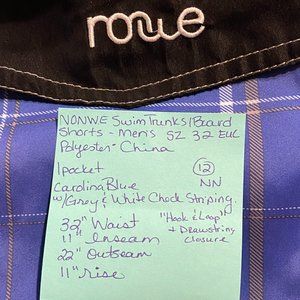 nonwe
NONWE SwimTrunks/Board
Shorts - Men's SZ 32 EUC
Polyester - China
1 pocket
12
NN
Carolina Blue
w/Grey & White Check Striping.
32" Waist
"Hook & Loop"
11" Inseam
+ Drawstring
closure
22" outseam
11" rise